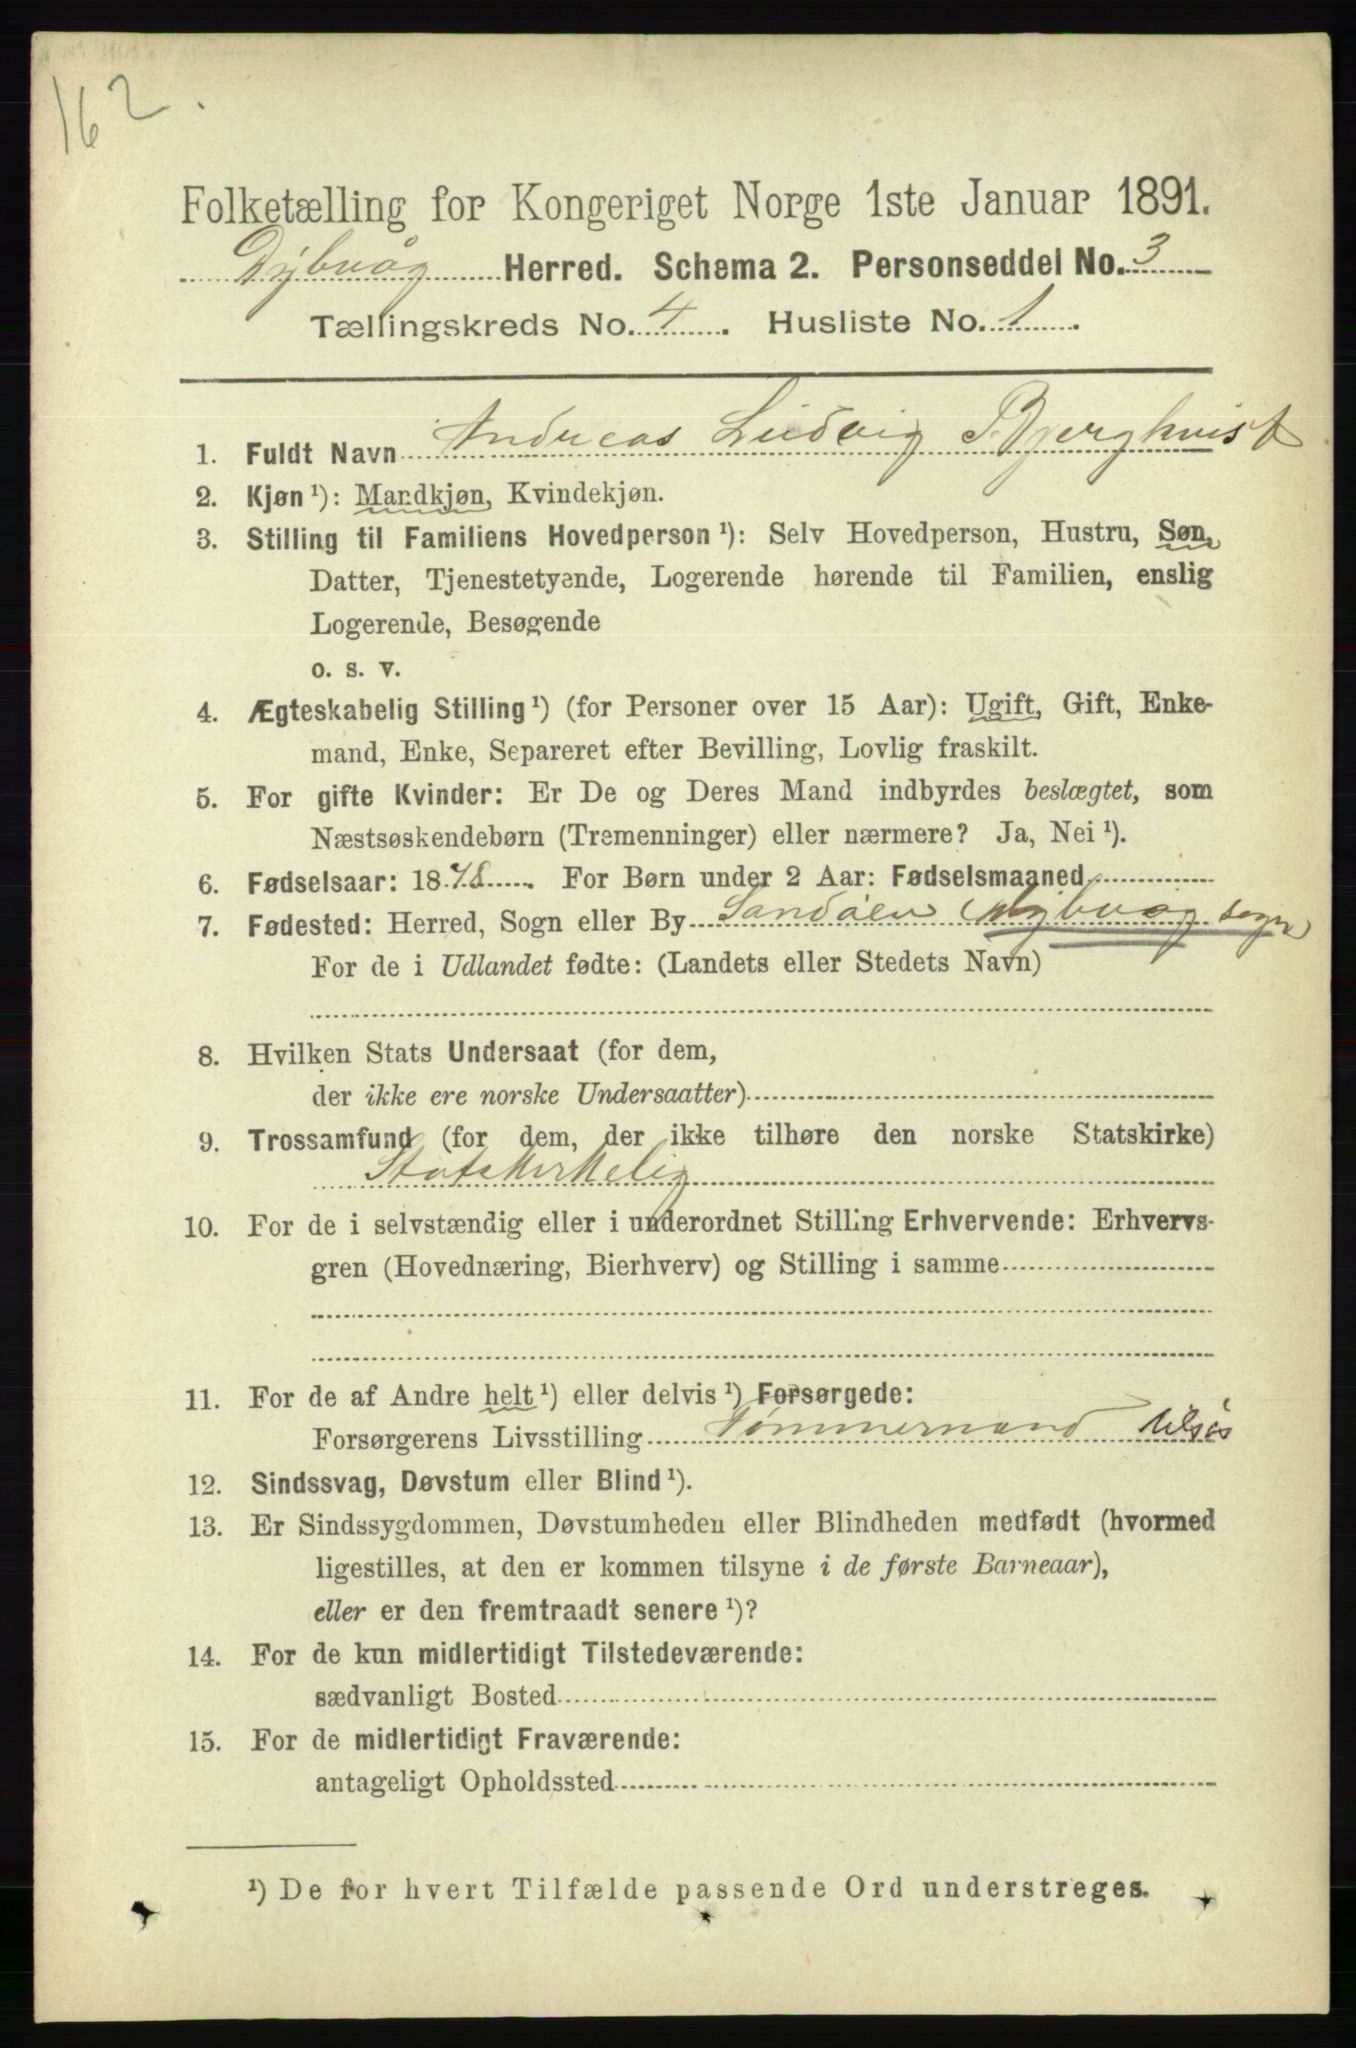 162.
Folketælling for Kongeriget Norge 1ste Januar 1891.
Dybvåg Herred. Schema 2. Personseddel No. 3
Tællingskreds No. 4. Husliste No. 1.
1. Fuldt Navn Andreas Ludvig Bjerghvist
2. Kjøn ¹): Mandkjøn, Kvindekjøn.
3. Stilling til Familiens Hovedperson ¹): Selv Hovedperson, Hustru, Søn,
Datter, Tjenestetyende, Logerende hørende til Familien, enslig
Logerende, Besøgende
o. s. v.
4. Ægteskabelig Stilling ¹) (for Personer over 15 Aar): Ugift, Gift, Enke-
mand, Enke, Separeret efter Bevilling, Lovlig fraskilt.
5. For gifte Kvinder: Er De og Deres Mand indbyrdes beslægtet, som
Næstsøskendebørn (Tremenninger) eller nærmere? Ja, Nei ¹).
6. Fødselsaar: 1878. For Børn under 2 Aar: Fødselsmaaned
7. Fødested: Herred, Sogn eller By Sandøen (Dybvåg sogn)
For de i Udlandet fødte: (Landets eller Stedets Navn)
8. Hvilken Stats Undersaat (for dem,
der ikke ere norske Undersaatter)
9. Trossamfund (for dem, der ikke tilhøre den norske Statskirke)
Statskirkelig
10. For de i selvstændig eller i underordnet Stilling Erhvervende: Erhvervs-
gren (Hovednæring, Bierhverv) og Stilling i samme
11. For de af Andre helt ¹) eller delvis ¹) Forsørgede:
Forsørgerens Livsstilling Tømmermand tilsøs
12. Sindssvag, Døvstum eller Blind ¹).
13. Er Sindssygdommen, Døvstumheden eller Blindheden medfødt (hvormed
ligestilles, at den er kommen tilsyne i de første Barneaar),
eller er den fremtraadt senere ¹)?
14. For de kun midlertidigt Tilstedeværende:
sædvanligt Bosted
15. For de midlertidigt Fraværende:
antageligt Opholdssted
¹) De for hvert Tilfælde passende Ord understreges.